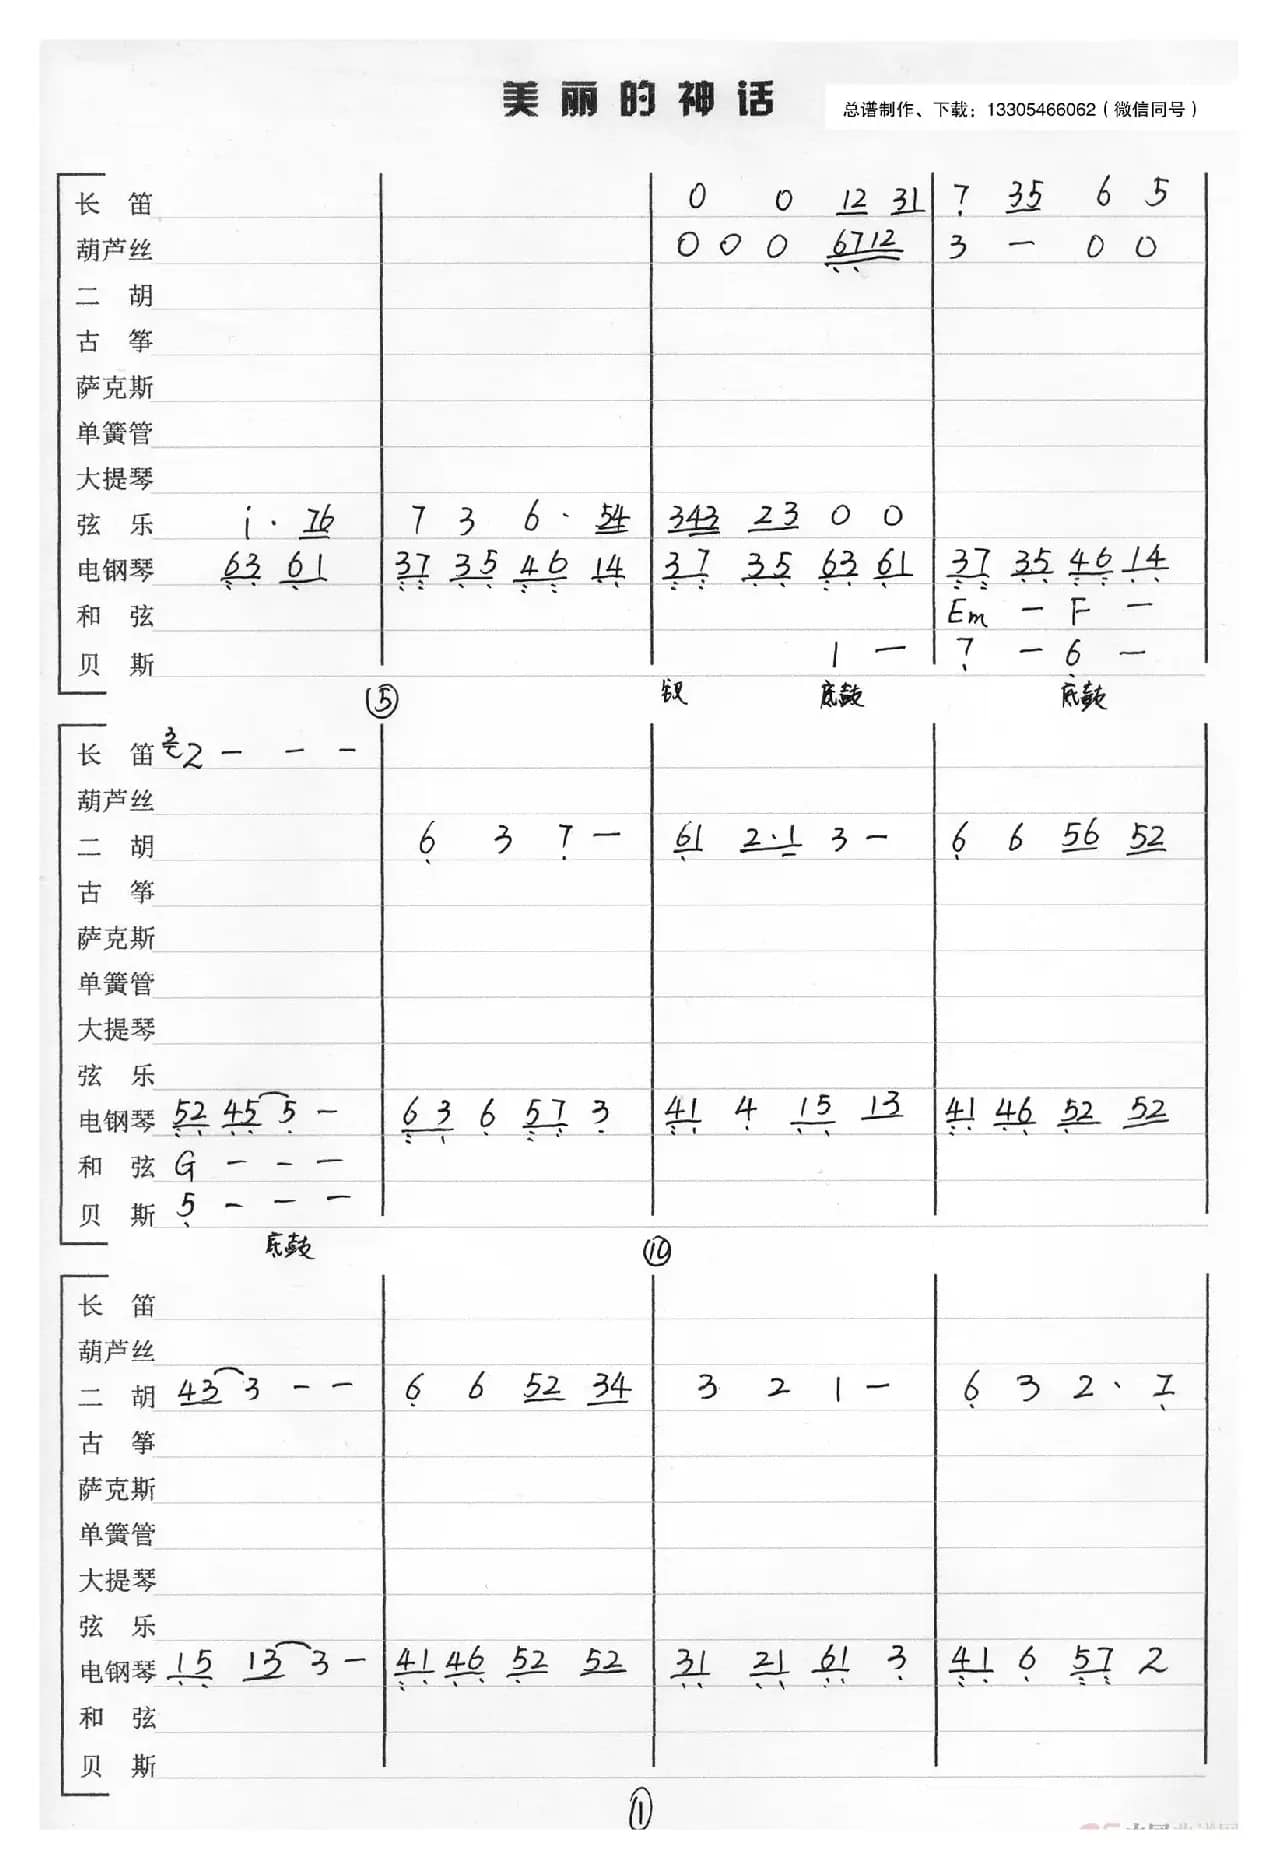 美丽的神话
总谱制作、下载：13305466062（微信同号）
长笛 0 0 12 31 7 35 6 5
葫芦丝 0 0 0 6712 3 — 0 0
二胡
古筝
萨克斯
单簧管
大提琴
弦乐 i · 76 7 3 6 · 54 343 23 0 0
电钢琴 63 61 37 35 46 14 37 35 63 61 37 35 46 14
和弦 Em — F —
贝斯 1 — 7 — 6 —
⑤ 底鼓 底鼓
长笛 3 2 — — —
葫芦丝
二胡 6 3 7 — 61 2·1 3 — 6 6 56 52
古筝
萨克斯
单簧管
大提琴
弦乐
电钢琴 52 45 5 — 63 6 57 3 41 4 15 13 41 46 52 52
和弦 G — — —
贝斯 5 — — —
底鼓 ⑩
长笛
葫芦丝
二胡 43 3 — — 6 6 52 34 3 2 1 — 6 3 2 · 7
古筝
萨克斯
单簧管
大提琴
弦乐
电钢琴 15 13 3 — 41 46 52 52 31 21 61 3 41 6 57 2
和弦
贝斯
①